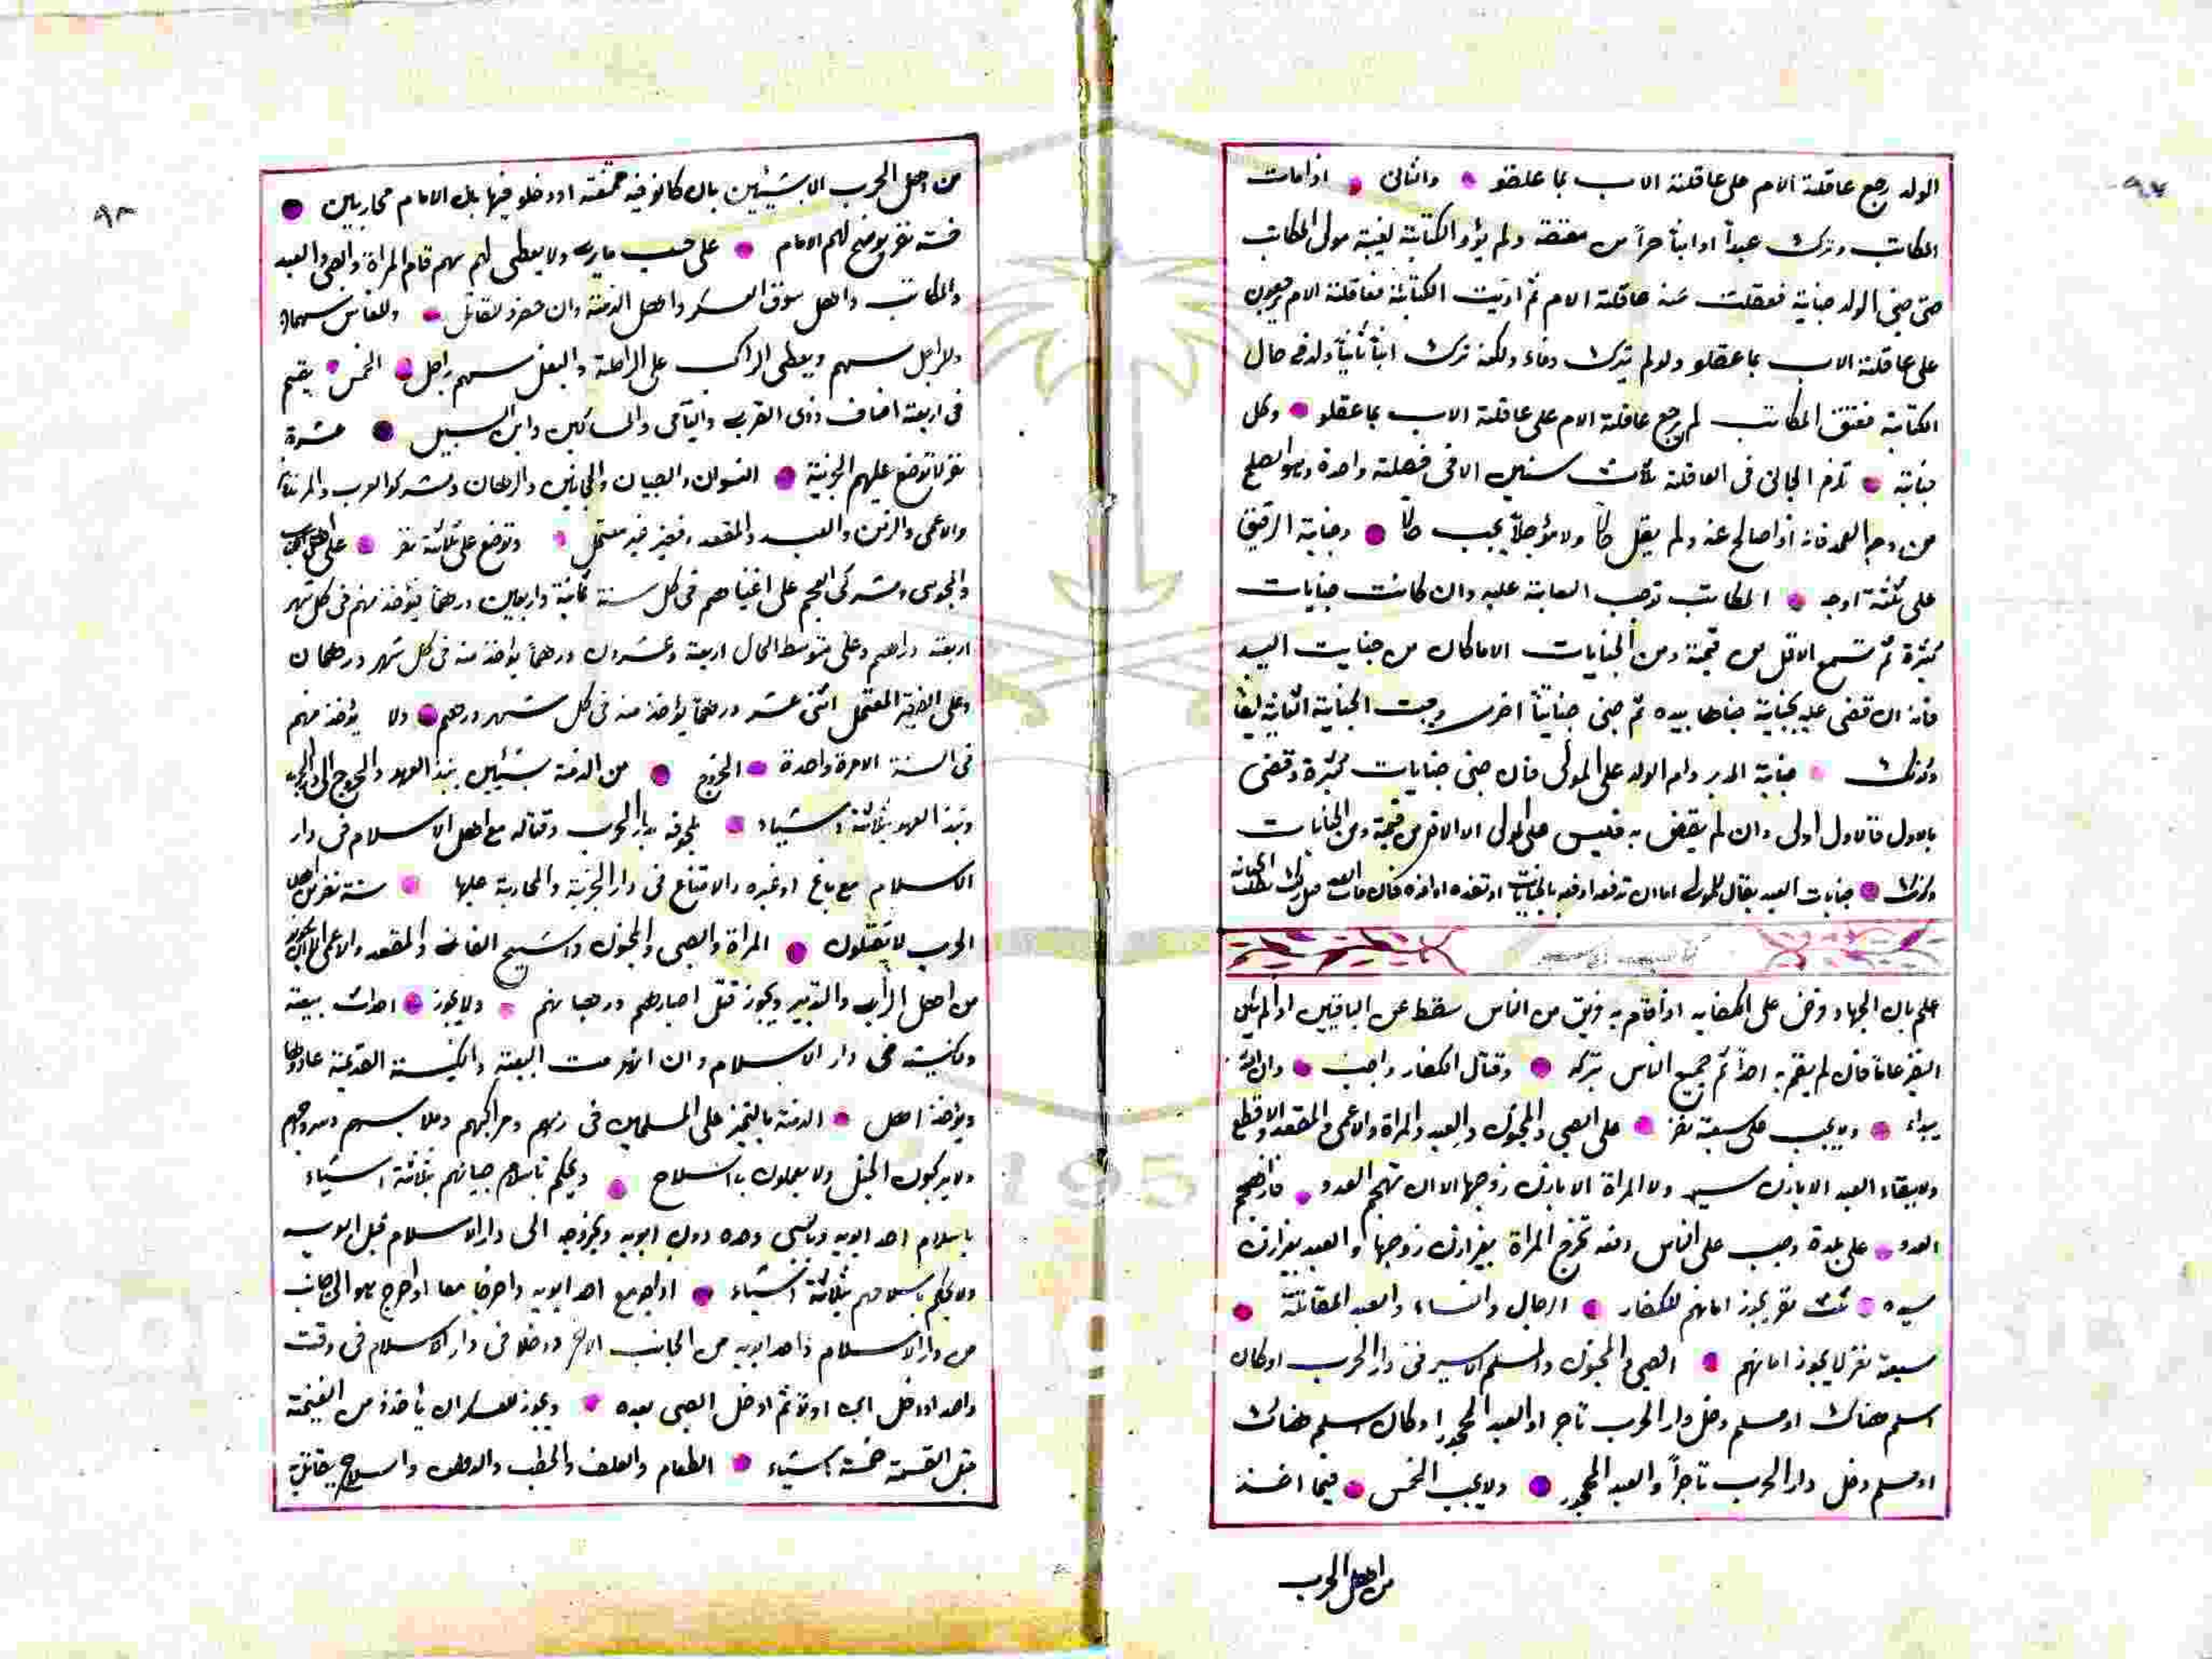 ٩٧
الولد رجع عاقلة الام على عاقلة الاب بما عقلو والثانى اذا مات
المكاتب وترك عبداً او ابناً حراً من معتقة ولم يؤد الكتابة لغيبة مولى المكاتب
حتى جنى الولد جناية فعقلت عنه عاقلة الام ثم اديت الكتابة فعاقلة الام يرجعون
على عاقلة الاب بما عقلو ولو لم يترك وفاء ولكنه ترك ابناً ثانياً ولد فى حال
الكتابة فعتق المكاتب لم يرجع عاقلة الام على عاقلة الاب بما عقلو وكل
جناية تلزم الجانى فى العاقلة ثلاث سنين الا فى فصلة واحدة وهو الصلح
من دم العمد فانه اذا صالح عنه ولم يقل حالاً ولا مؤجلاً يجب حالاً وجناية الرقيق
على ثلثة اوجه المكاتب توجب السعاية عليه وان كانت جنايات
كثيرة ثم تسمع الاقل من قيمته ومن الجنايات الا ما كان من جنايت اليد
فانه ان قضى عليه بجناية جناها بيده ثم جنى جنايتاً اخرى وجبت الجناية الثانية ايضا
وكذلك جناية المدبر وام الولد على المولى فان جنى جنايات كثيرة وقضى
بالاول فالاول اولى وان لم يقض به فليس على المولى الا الاقل من قيمته ومن الجنايات
وكذلك جنايات العبد يقال للمولى اما ان تدفعه او تفده فان مات العبد قبل ذلك بطلت الجناية
علم بان الجهاد فرض على الكفاية اذا قام به فريق من الناس سقط عن الباقين اذا لم يكن
النفير عاماً فان لم يقم به احداً ثم جميع الناس بتركه وقتال الكفار واجب وان لم
يبداء ولا يجب على سبعة نفر على الصبي والمجنون والعبد والمراة والاعمى والمقعد والاقطع
ولا يقاء العبد الا باذن سيده ولا المراة الا باذن زوجها الا ان تهجم العدو فاذا هجم
العدو على بلدة وجب على الناس دفعه تخرج المراة بغير اذن زوجها والعبد بغير اذن
سيده ثلث نفر يجوز امانهم للكفار الرجال والنساء والعبد المقاتلة
سبعة نفر لا يجوز امانهم الصبي والمجنون والمسلم الاسير فى دار الحرب او كان
اسلم هناك او مسلم دخل دار الحرب تاجر او العبد المحجور او كان اسلم هناك
او مسلم دخل دار الحرب تاجراً والعبد المحجور ولا يجب الخمس فيما اخذ
من اهل الحرب
٩٨
من اهل الحرب الا بشيئين بان كانو فيه ممنعة او دخلو فيها باذن الامام محاربين
خمسة نفر يوضح لهم الامام على حسب ما يرى ولا يعطى لهم سهم تام المراة والصبي والعبد
والمكاتب واهل سوق العسكر واهل الذمة وان حضرو للقتال وللفارس سهمان
وللراجل سهم ويعطى الراكب على الراحلة والبغل سهم راجل الخمس يقسم
فى اربعة اصناف ذوى القربى واليتامى والمساكين وابن السبيل عشرة
نفر لا توضع عليهم الجزية النسوان والصبيان والمجانين والرهبان ومشركوا العرب والمرتدين
والاعمى والزمن والعبد والمقعد وفقير غير معتمل وتوضع على ثلاثة نفر على اهل الكتاب
والمجوس ومشركى العجم على اغنياهم فى كل سنة ثمانية واربعين درهماً يؤخذ منهم فى كل شهر
اربعة دراهم وعلى متوسط الحال اربعة وعشرون درهماً يؤخذ منه فى كل شهر درهمان
وعلى الفقير المعتمل اثنى عشر درهماً يؤاخذ منه فى كل شهر درهم ولا يؤخذ منهم
فى السنة الا مرة واحدة الخروج من الذمة بشيئين بنبذ العهد والخروج الى دار الحرب
ونبذ العهد بثلاثة اشياء بلحوقه بدار الحرب وقتاله مع اهل الاسلام فى دار
الاسلام مع باغ او غيره والامتناع فى دار الجزية والمحاربة عليها ستة نفر من اهل
الحرب لا يقتلون المراة والصبي والمجنون والشيخ الفانى والمقعد والاعمى الا ان يكون
من اهل الراى والتدبير ويجوز قتل احبارهم ورهبانهم ولا يجوز احداث بيعة
وكنيسة فى دار الاسلام وان انهدمت البيعة والكنيسة القديمة عادوها
ويؤخذ اهل الذمة بالتميز على المسلمين فى زيهم ومراكبهم وملابسهم وسروجهم
ولا يركبون الخيل ولا يعملون بالسلاح ويحكم باسلام صبيانهم بثلاثة اشياء
باسلام احد ابويه وبالسبى وحده دون ابويه وبخروجه الى دار الاسلام قبل ابويه
ولا يحكم باسلامهم بثلاثة اشياء اذا سبي مع احد ابويه واخرجا معا او اخرج هو الى جانب
من دار الاسلام واحد ابويه من الجانب الاخر ودخلا فى دار الاسلام فى وقت
واحد او دخل ابوه اولاً ثم ادخل الصبى بعده ويجوز للعسكر ان يأخذو من الغنيمة
قبل القسمة خمسة اشياء الطعام والعلف والحطب والدهن والسلاح يقاتل به